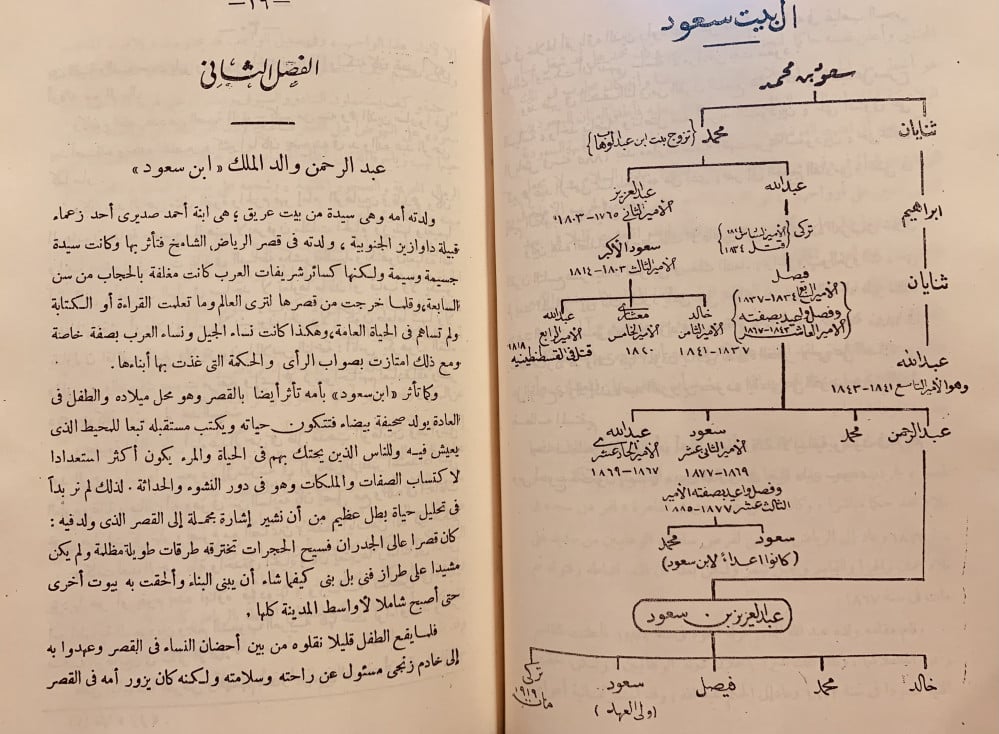 ال بيت سعود
سعود بن محمد
ثنايان
محمد {تزوج بنت ابن عبد الوهاب}
ابراهيم
عبدالله
عبدالعزيز
الأمير الثاني ١٧٦٥-١٨٠٣
تركي
قتل ١٨٣٤
سعود الأكبر
الأمير الثالث ١٨٠٣-١٨١٤
ثنايان
فصل
الأمير التاسع ١٨٣٤-١٨٣٧
وفصل واعيد بصفته
الأمير العاشر ١٨٤٣-١٨٦٧
خالد
الأمير الثامن
١٨٣٧-١٨٤١
الأمير الخامس
١٨٢٠
عبدالله
الأمير الرابع
قتل في القسطنطينيه ١٨١٨
عبدالله
وهو الأمير التاسع ١٨٤١-١٨٤٣
عبدالرحمن
محمد
سعود
الأمير الثاني عشر
١٨٦٩-١٨٧٧
وفصل واعيد بصفته الأمير
الثالث عشر ١٨٧٧-١٨٨٥
عبدالله
الأمير الحادي عشر
١٨٦٧-١٨٦٩
سعود
محمد
(كانوا اعداءً لابن سعود)
عبد العزيز بن سعود
خالد
محمد
فيصل
سعود
(ولي العهد)
تركي
مات ١٩١٩
—١٦—
الفصل الثاني
عبد الرحمن والد الملك «ابن سعود»
ولدته أمه وهى سيدة من بيت عريق، هى ابنة أحمد صديرى أحد زعماء
قبيلة داوازيز الجنوبية، ولدته فى قصر الرياض الشامخ فتأثر بها وكانت سيدة
جسيمة وسيمة ولكنها كسائر شريفات العرب كانت مغلفة بالحجاب من سن
السابعة، وقلما خرجت من قصرها لترى العالم وما تعلمت القراءة أو الكتابة
ولم تساهم فى الحياة العامة، وهكذا كانت نساء الجيل ونساء العرب بصفة خاصة
ومع ذلك امتازت بصواب الرأى والحكمة التى غذت بها أبناءها.
وكما تأثر «ابن سعود» بأمه تأثر أيضا بالقصر وهو محل ميلاده والطفل فى
العادة يولد صحيفة بيضاء فتتكون حياته ويكتب مستقبله تبعا للمحيط الذى
يعيش فيه وللناس الذين يحتك بهم فى الحياة والمرء يكون أكثر استعدادا
لاكتساب الصفات والملكات وهو فى دور النشوء والحداثة. لذلك لم نر بداً
فى تحليل حياة بطل عظيم من أن نشير إشارة مجملة إلى القصر الذى ولد فيه:
كان قصرا عالى الجدران فسيح الحجرات تخترقه طرقات طويلة مظلمة ولم يكن
مشيدا على طراز فنى بل بنى كيفما شاء أن يبنى البناء وألحقت به بيوت أخرى
حتى أصبح شاملا لأواسط المدينة كلها.
فلما يفع الطفل قليلا نقلوه من بين أحضان النساء فى القصر وعهدوا به
إلى خادم زنجى مسئول عن راحته وسلامته ولكنه كان يزور أمه فى القصر